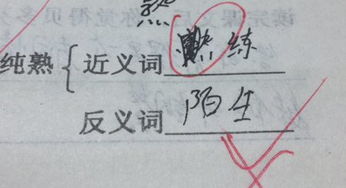 熟
纯熟
近义词 熟练
反义词 陌生